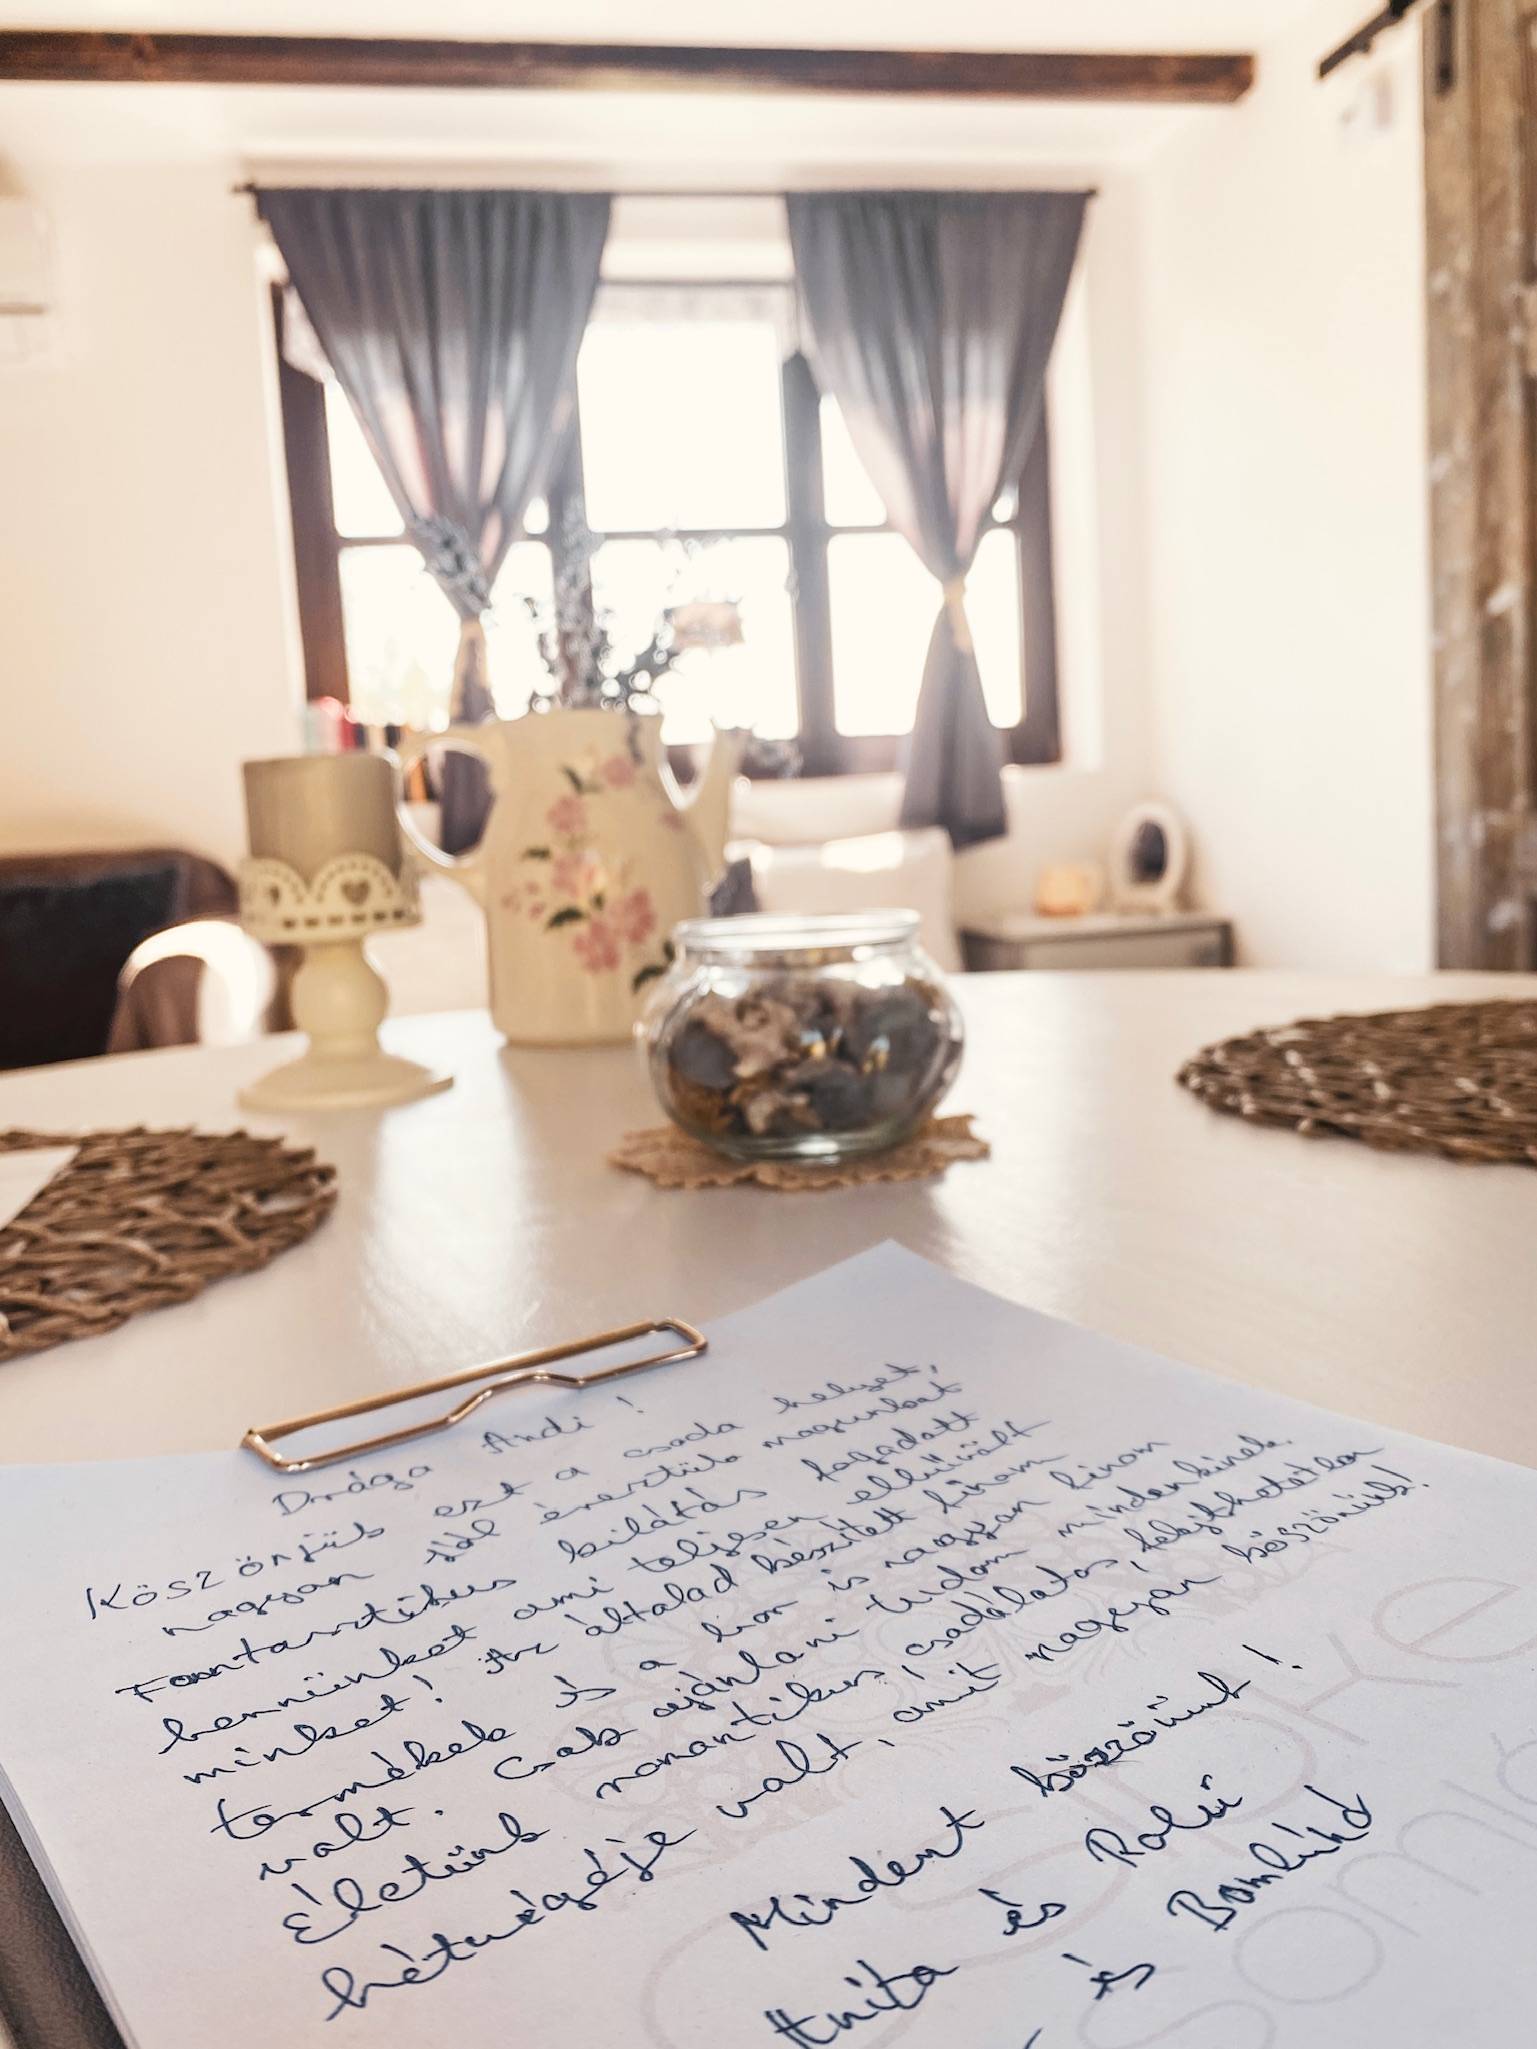 Drága Andi!
Köszönjük ezt a csoda helyset,
nagyon jól éreztük magunkat
Fantasztikus kilátás fogadott
bennünket ami teljesen elbűvölt
minket! Az általad készített finom
termékek és a bor is nagyon finom
volt. Csak ajánlani tudom mindenkinek.
Életünk romantikus, csodálatos, felejthetetlen
hétvégéje volt, amit nagyon köszönünk!
Mindent köszönünk!
Anita és Robi
és Bomlúnd